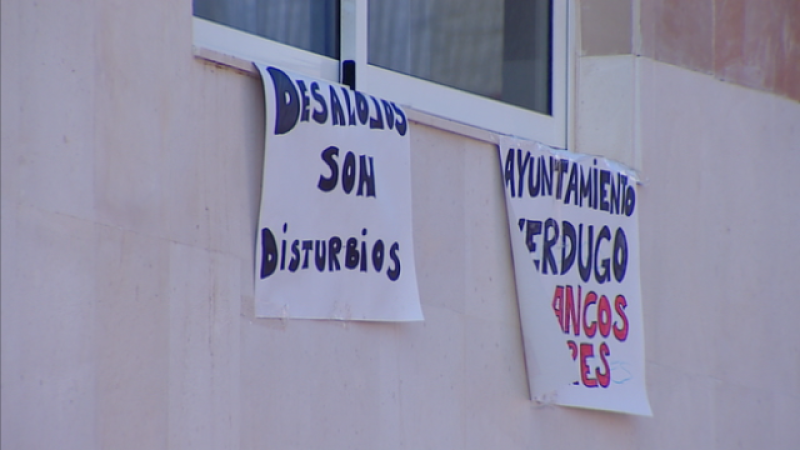 DESALOJOS
SON
DISTURBIOS
AYUNTAMIENTO
ERDUGO
ANCOS
ES